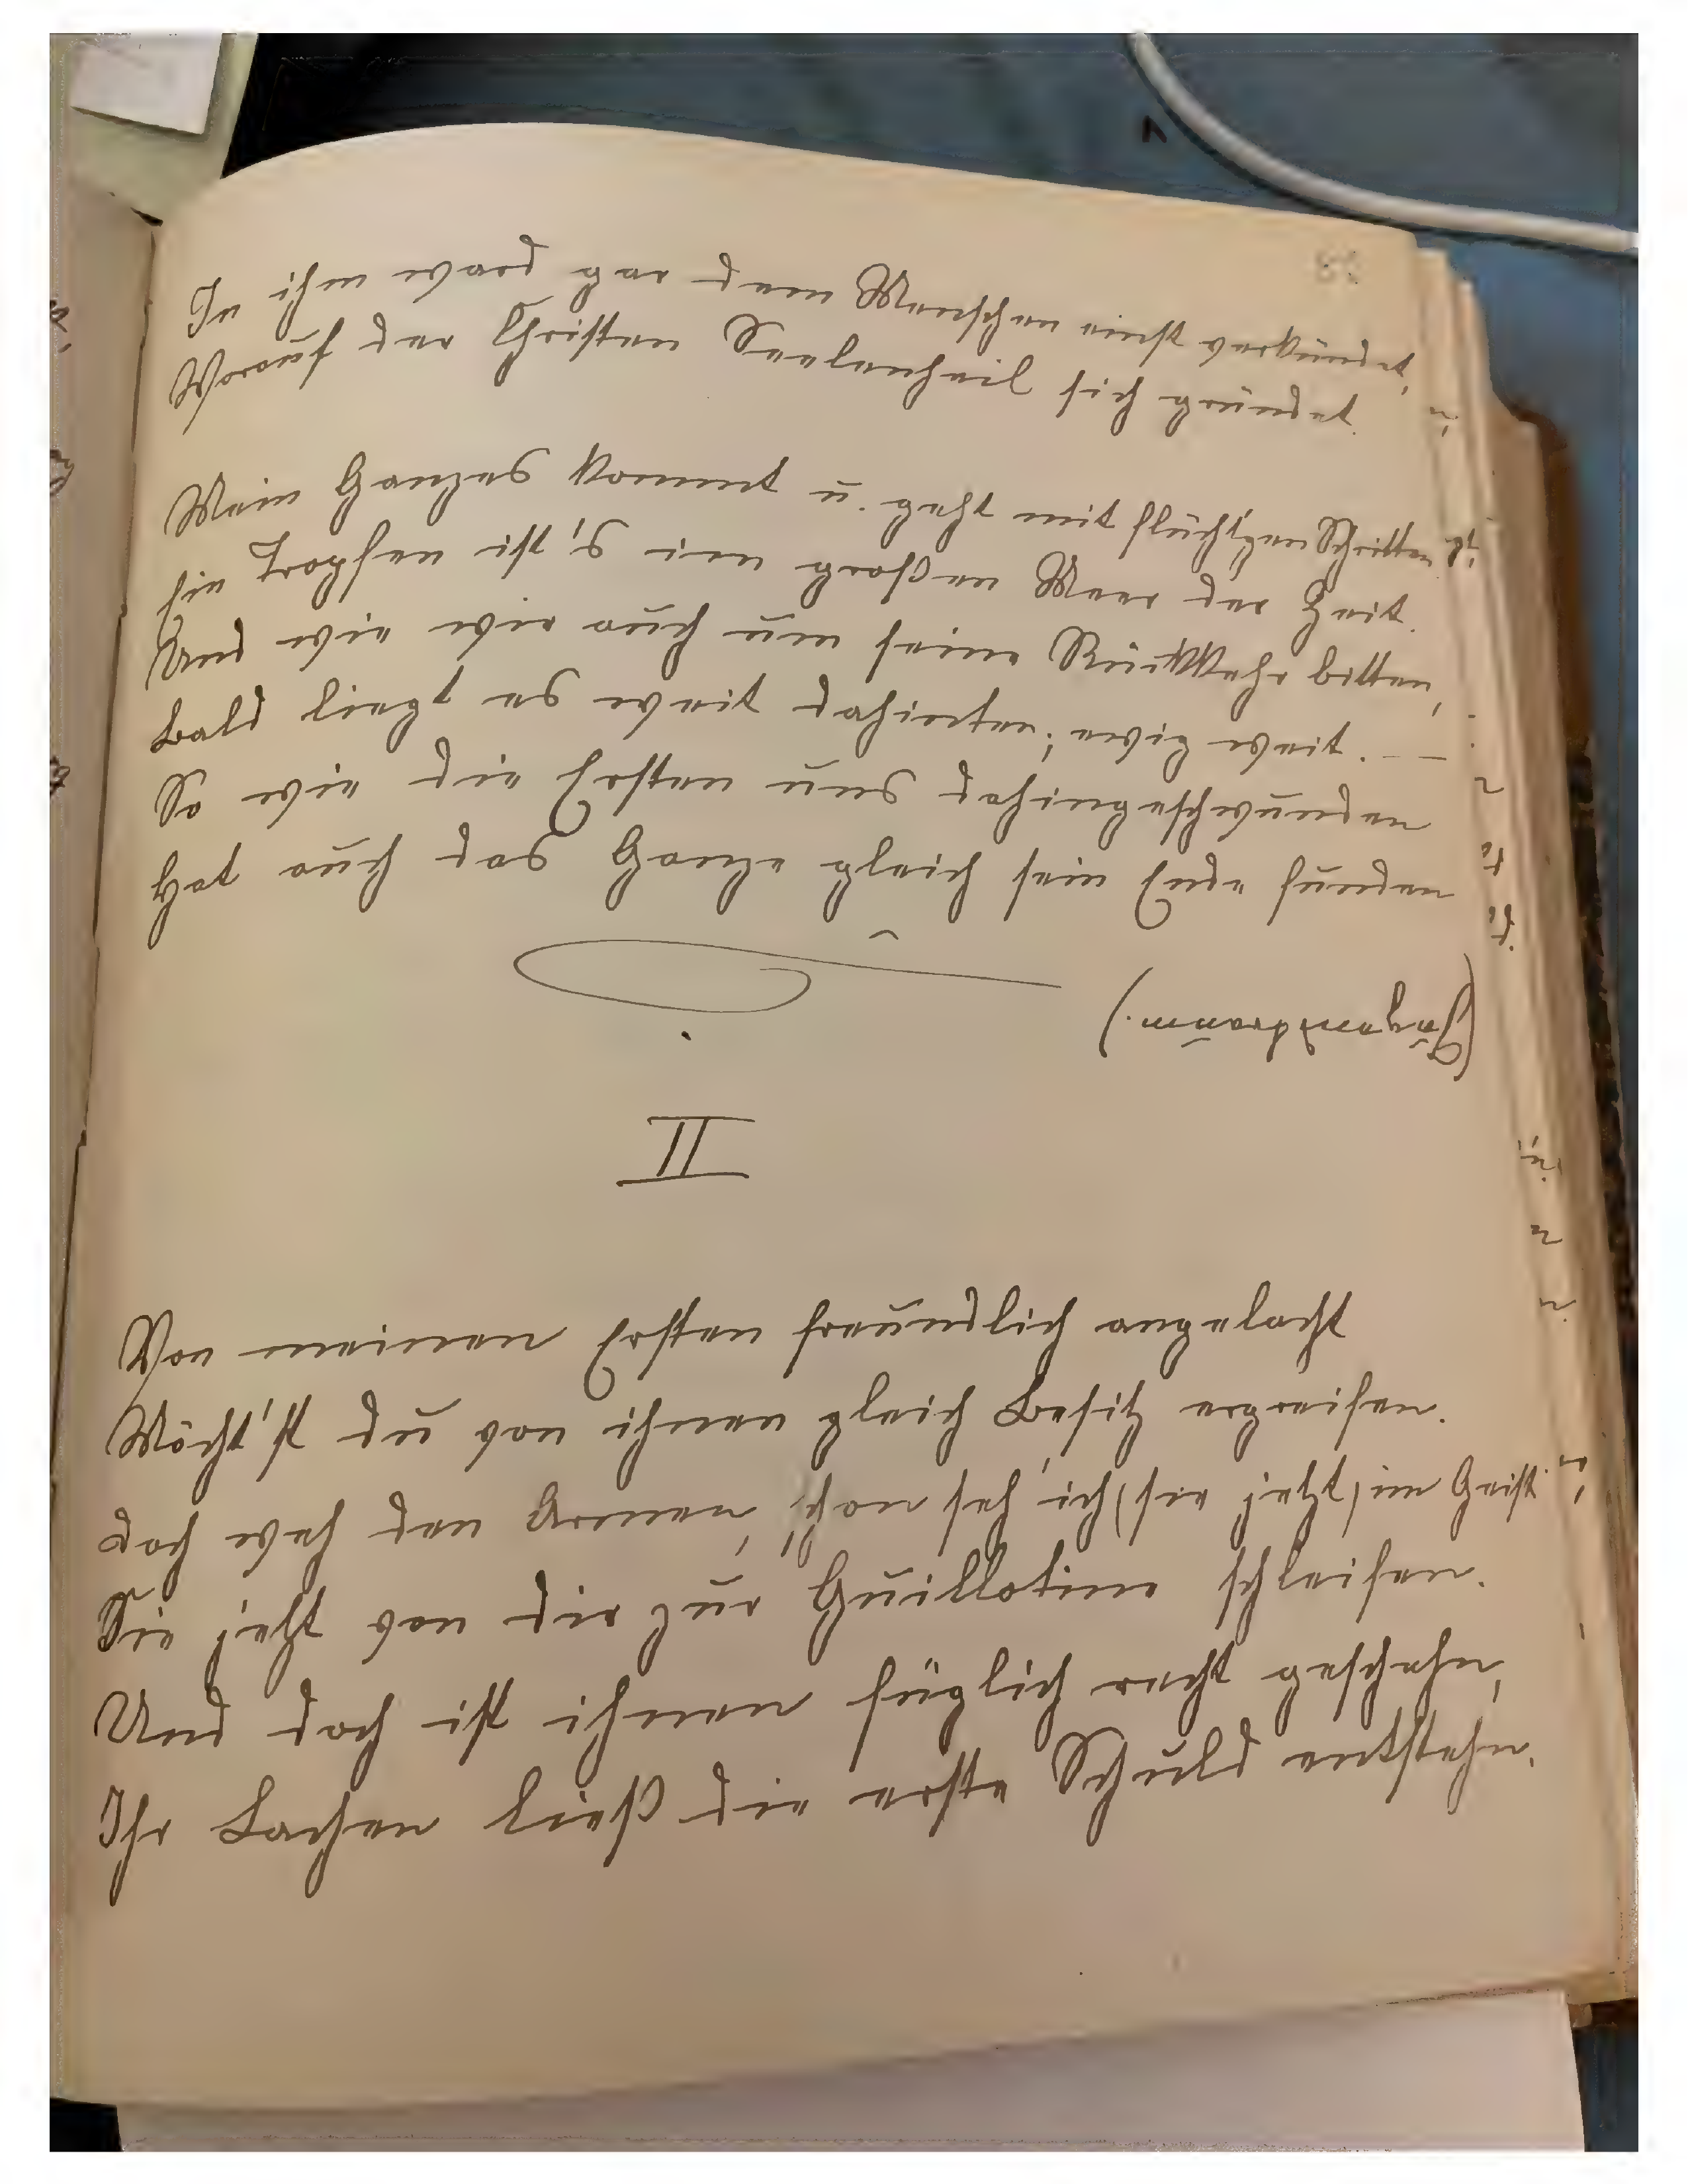 In ihm ward gar dem Menschen einst verkündet,
Worauf der Christen Seelenheil sich gründet.
Mein Ganzes kommt u. geht mit flücht'gen Schritten
Ein Tropfen ist's im großen Meer der Zeit.
Und wie wir auch um seine Rückkehr bitten,
Bald liegt es weit dahinten; ewig weit. — —
So wie die Ersten uns dahingeschwunden
Hat auch das Ganze gleich sein Ende funden
(Jugendtraum.)
II
Von meinen Ersten freundlich angelacht
Möcht'st du von ihnen gleich Besitz ergreifen.
Doch weh den Armen, schon seh' ich (sie jetzt) im Geist
Sie jetzt von dir zur Guillotine schleifen.
Und doch ist ihnen füglich recht geschehn,
Ihr Lachen ließ die erste Schuld entstehn.